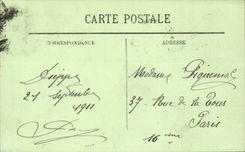 CARTE POSTALE
CORRESPONDANCE
ADRESSE
Dieppe
21 Septembre
1911
Madame Piquenal
37 Rue de la Tour
Paris
16 ème